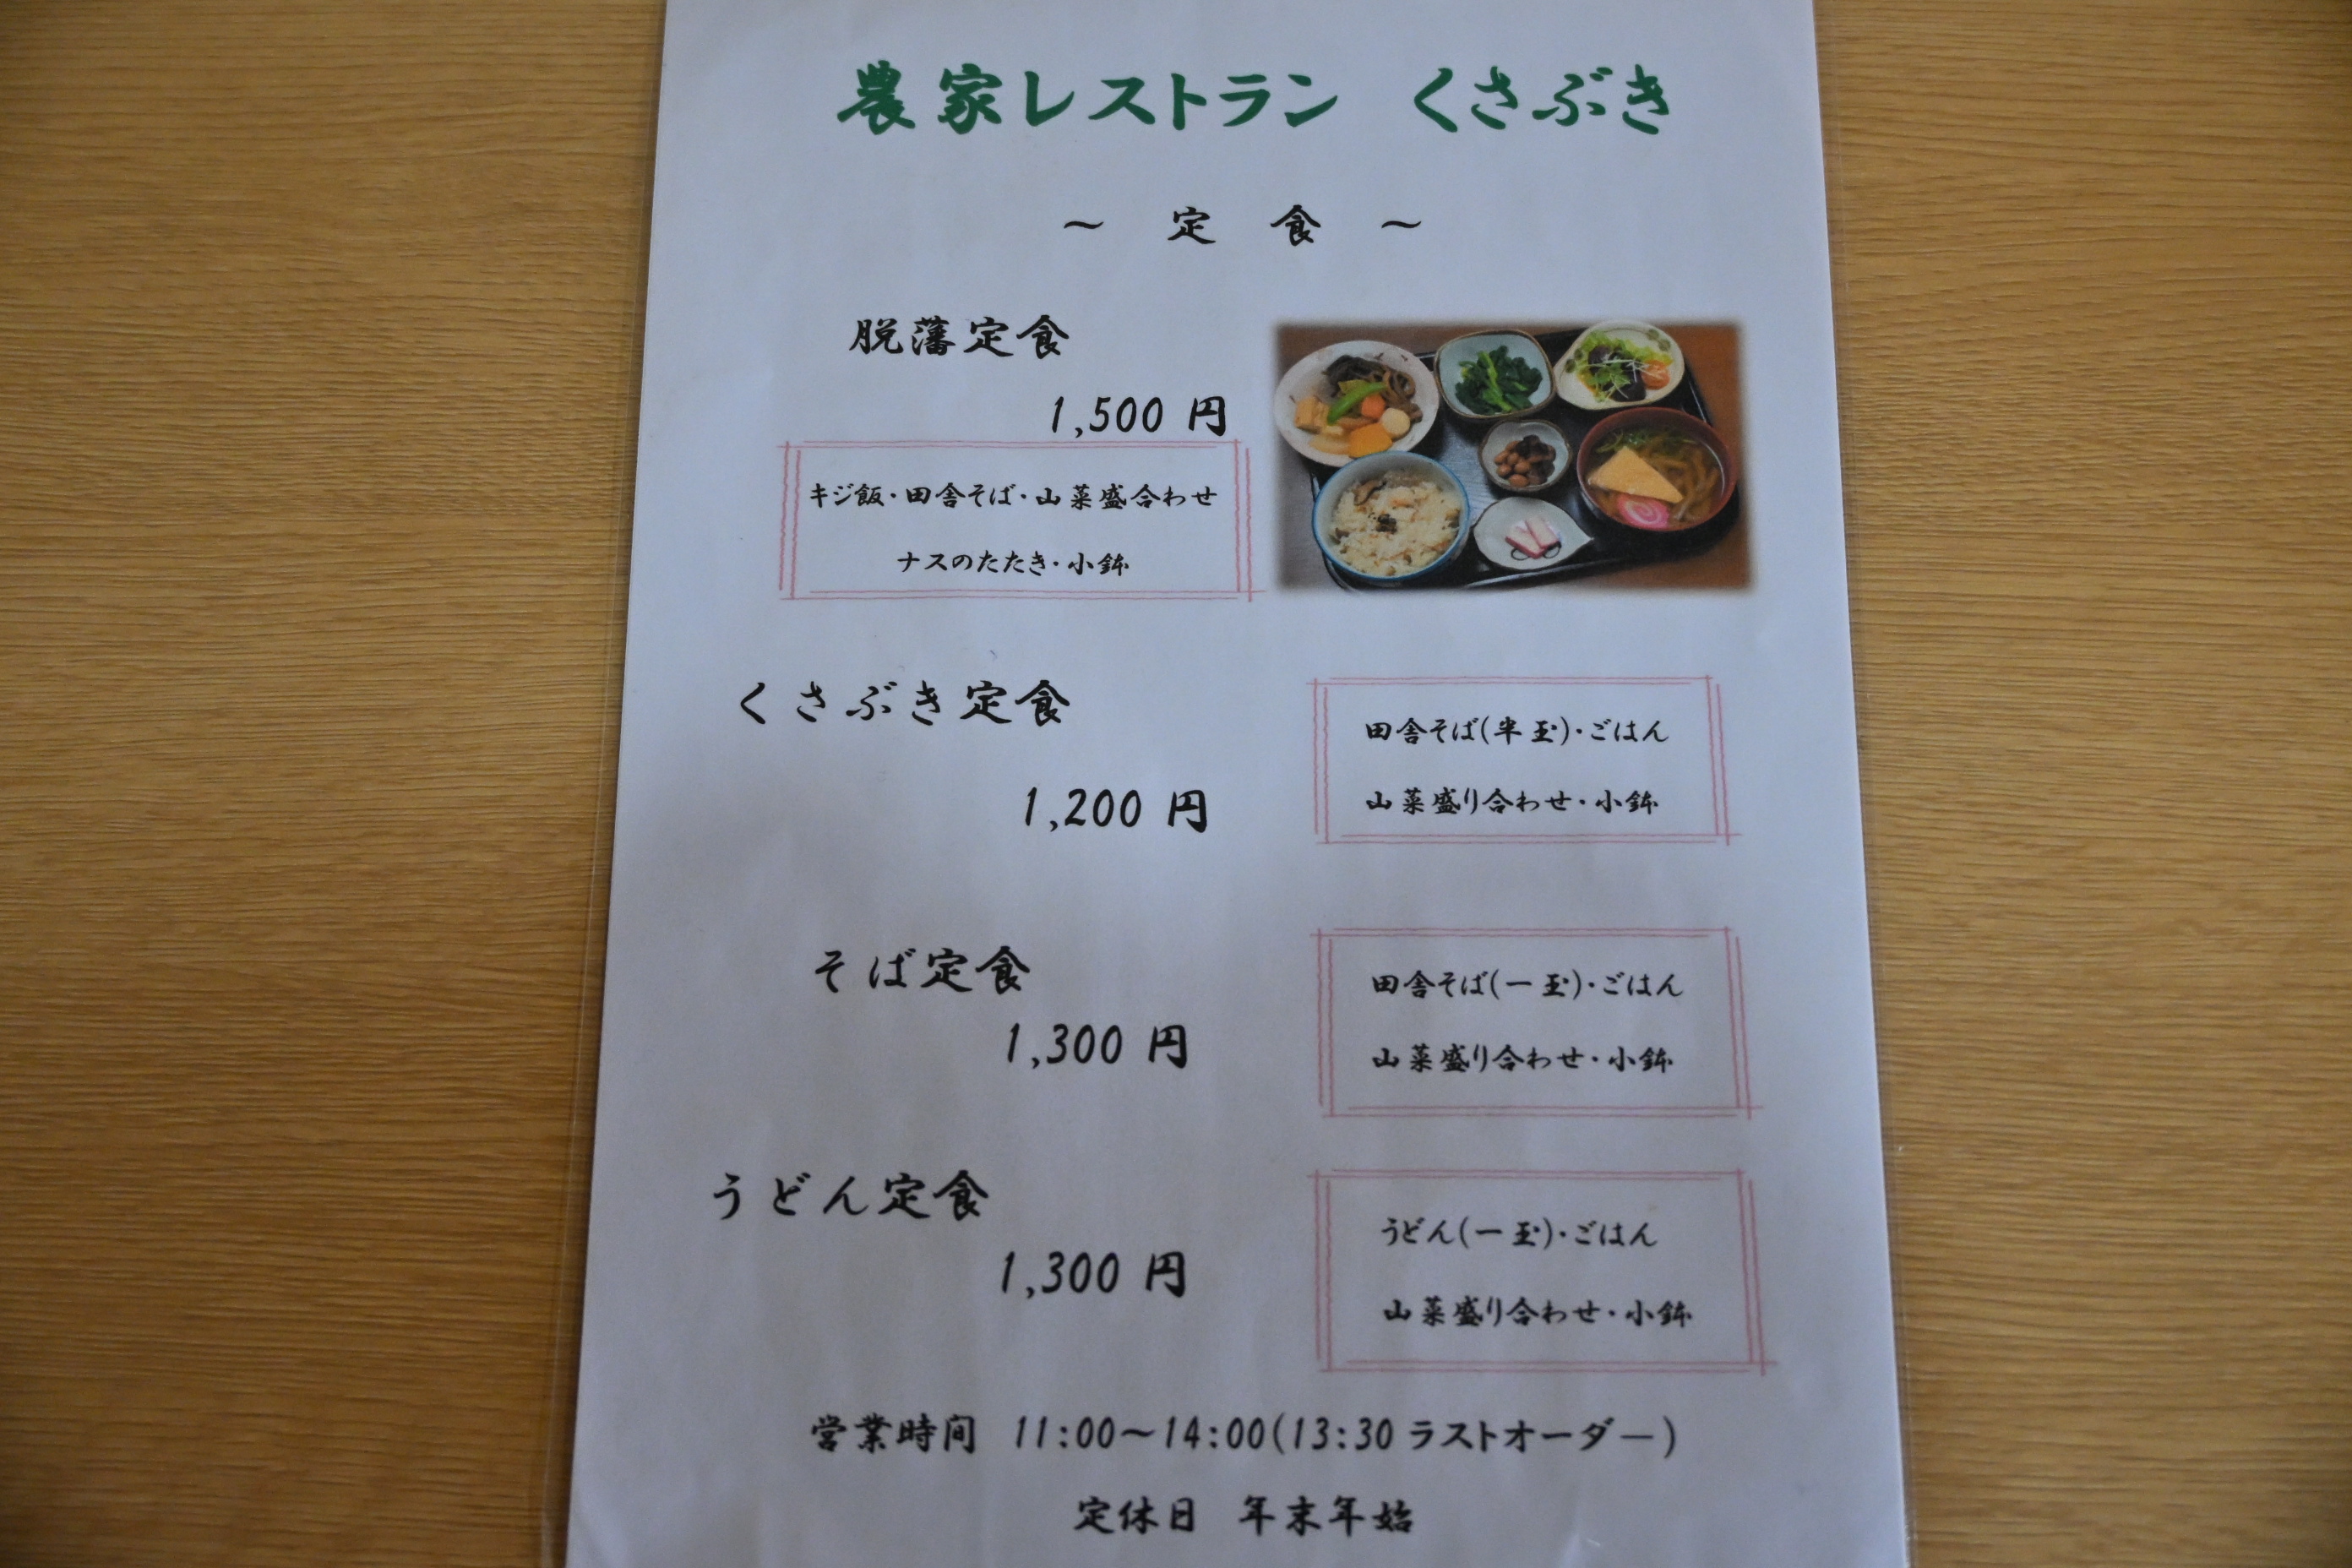 農家レストラン くさぶき
～ 定 食 ～
脱藩定食
1,500 円
キジ飯・田舎そば・山菜盛合わせ
ナスのたたき・小鉢
くさぶき定食
1,200 円
田舎そば(半玉)・ごはん
山菜盛り合わせ・小鉢
そば定食
1,300 円
田舎そば(一玉)・ごはん
山菜盛り合わせ・小鉢
うどん定食
1,300 円
うどん(一玉)・ごはん
山菜盛り合わせ・小鉢
営業時間 11:00～14:00(13:30 ラストオーダー)
定休日 年末年始